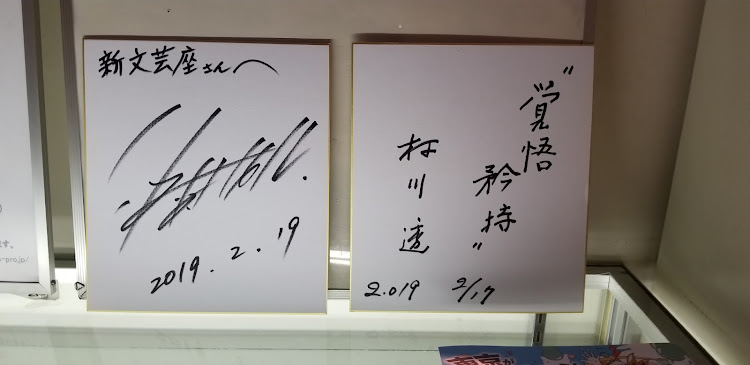 新文芸座さんへ
2019.2.19
"覚悟
矜持"
村川透
2.019 2/17
す。
-pro.jp/
東京